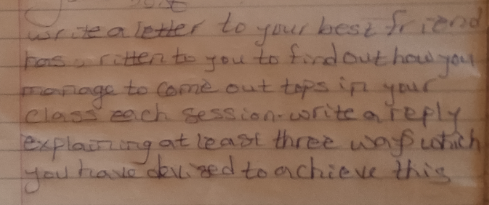 write a letter to your best friend
has written to you to find out how you
manage to come out tops in your
class each session. write a reply
explaining at least three ways which
you have devised to achieve this